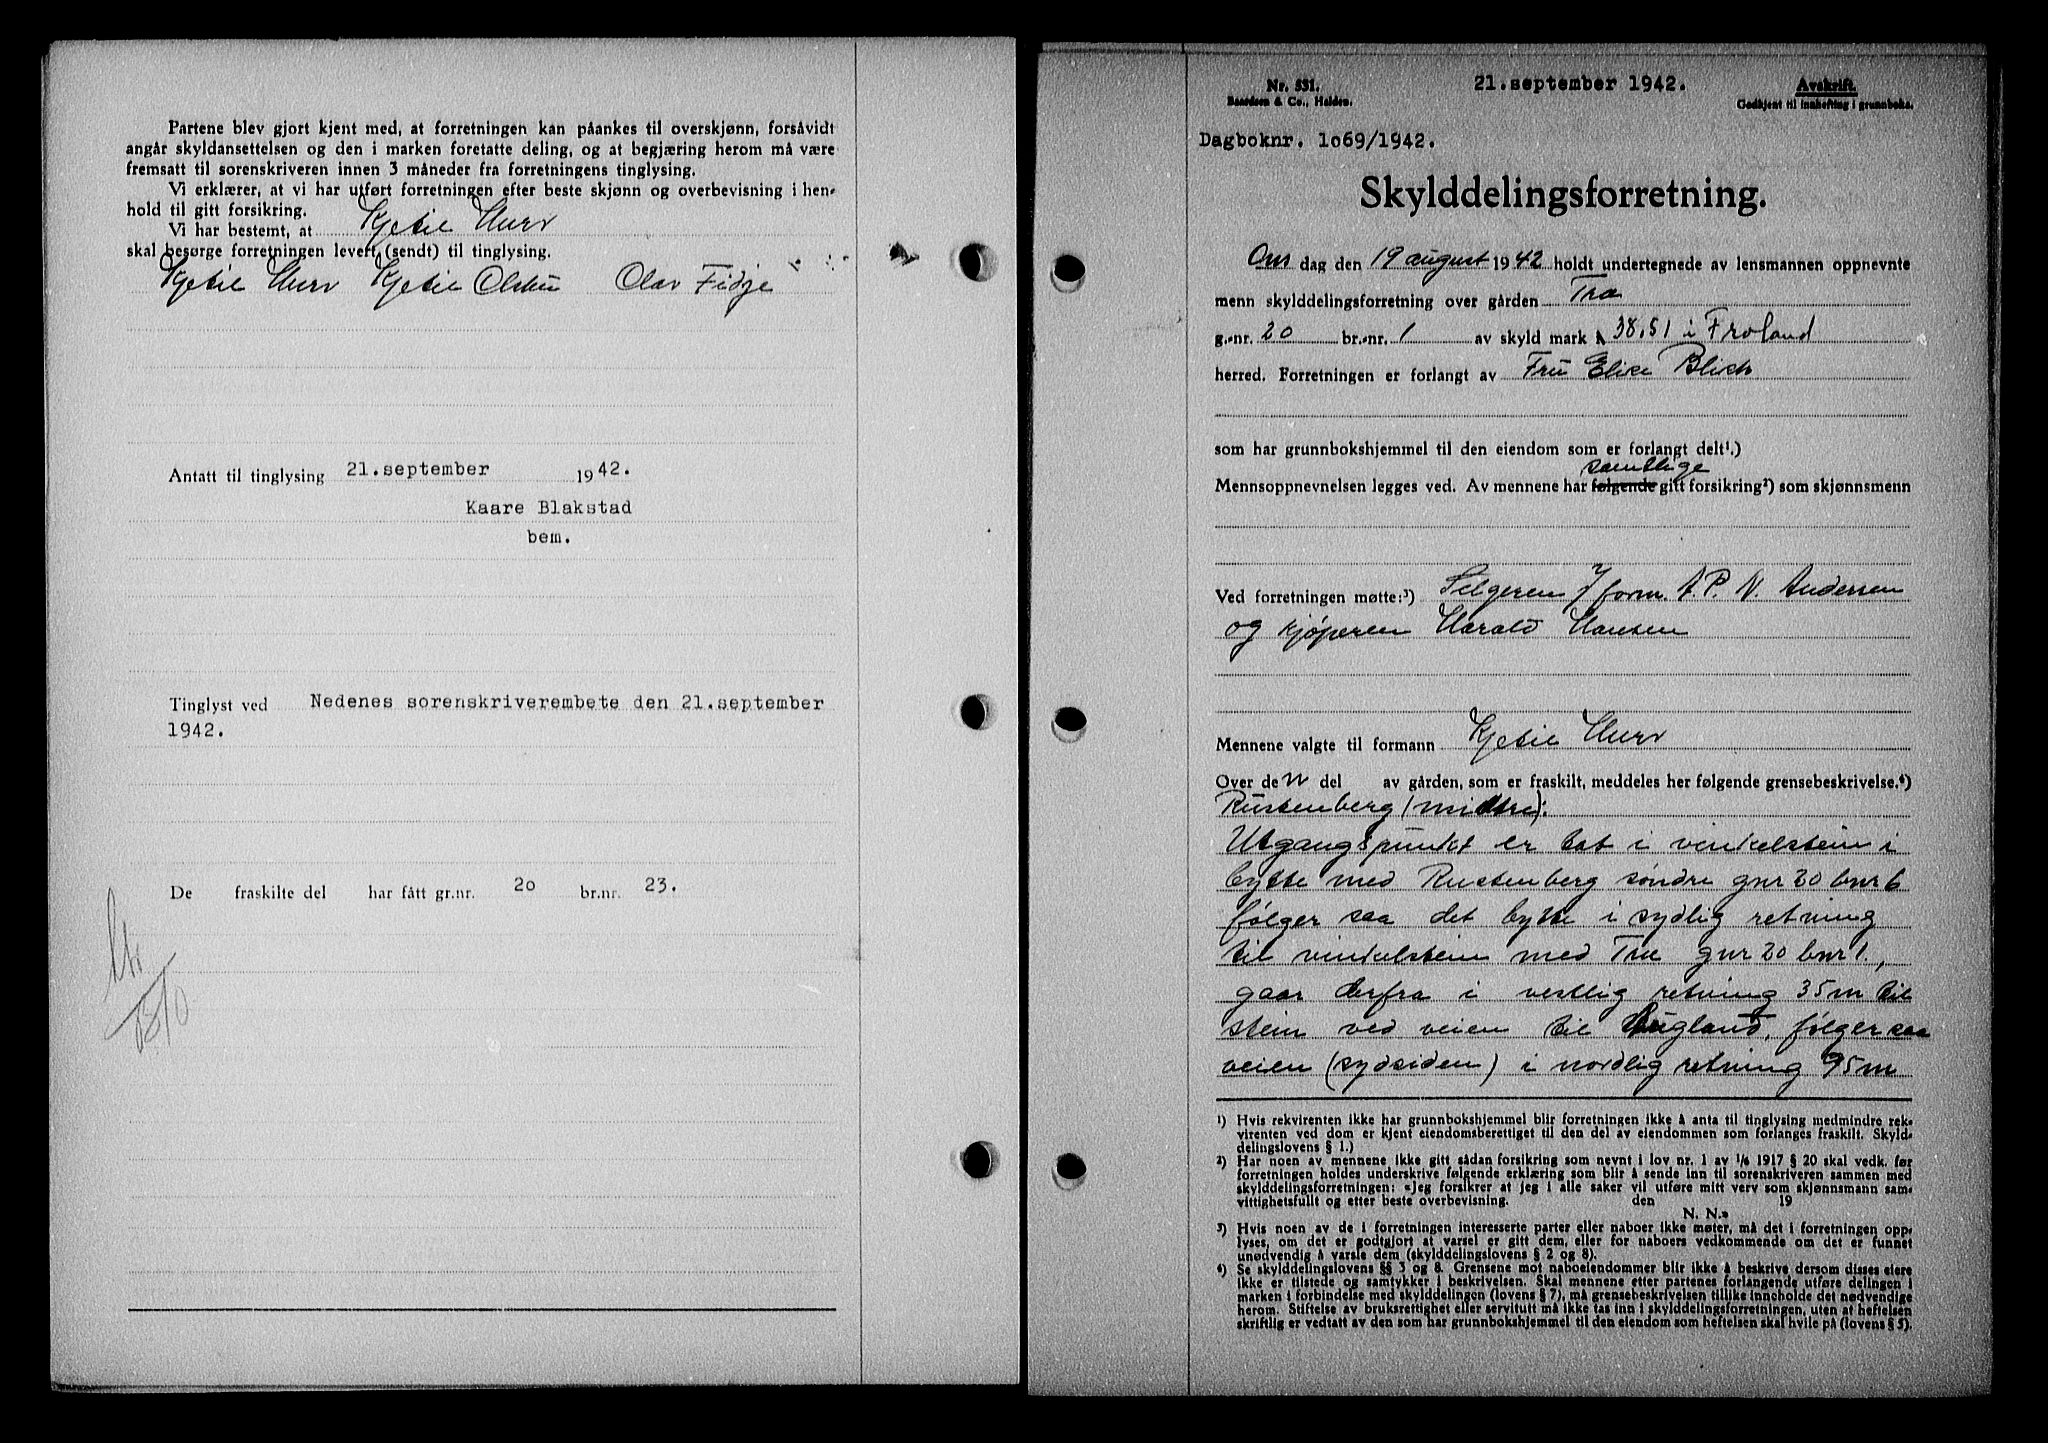 Partene blev gjort kjent med, at forretningen kan påankes til overskjønn, forsåvidt
angår skyldansettelsen og den i marken foretatte deling, og at begjæring herom må være
fremsatt til sorenskriveren innen 3 måneder fra forretningens tinglysing.
Vi erklærer, at vi har utført forretningen efter beste skjønn og overbevisning i hen-
hold til gitt forsikring.
Vi har bestemt, at Kjetil Hurv
skal besørge forretningen levert (sendt) til tinglysing.
Kjetil Hurv Kjetil Olsen Olav Fidje
Antatt til tinglysing 21.september 1942.
Kaare Blakstad
bem.
Tinglyst ved Nedenes sorenskriverembete den 21.september
1942.
De fraskilte del har fått gr.nr. 20 br.nr. 23.
Nr. 531.
Baardsen & Co., Halden.
21.september 1942.
Avskrift.
Godkjent til innhefting i grunnboka.
Dagboknr. 1069/1942.
Skylddelingsforretning.
Ons dag den 19 august 1942 holdt undertegnede av lensmannen oppnevnte
menn skylddelingsforretning over gården Tra
g.-nr. 20 br.-nr. 1 av skyld mark 38,51 i Froland
herred. Forretningen er forlangt av Fru Elise Blich
som har grunnbokshjemmel til den eiendom som er forlangt delt¹.)
samtlige
Mennsoppnevnelsen legges ved. Av mennene har følgende gitt forsikring²) som skjønnsmenn
Ved forretningen møtte:³) Selgeren v/ form. A. P. N. Andersen
og kjøperen Harald Hansen
Mennene valgte til formann Kjetil Hurv
Over de n del av gården, som er fraskilt, meddeles her følgende grensebeskrivelse.⁴)
Rustenberg (midtre):
Utgangspunkt er tat i vinkelstein i
bytte med Rustenberg søndre gnr 20 bnr 6
følger saa det bytte i sydlig retning
til vinkelstein med Tra gnr 20 bnr 1.,
gaar derfra i vestlig retning 35 m til
stein ved veien til Lugland, følger saa
veien (sydsiden) i nordlig retning 95 m
¹) Hvis rekvirenten ikke har grunnbokshjemmel blir forretningen ikke å anta til tinglysing medmindre rek-
virenten ved dom er kjent eiendomsberettiget til den del av eiendommen som forlanges fraskilt. Skyld-
delingslovens § 1.)
²) Har noen av mennene ikke gitt sådan forsikring som nevnt i lov nr. 1 av 1/6 1917 § 20 skal vedk. før
forretningen holdes underskrive følgende erklæring som blir å sende inn til sorenskriveren sammen med
skylddelingsforretningen: «Jeg forsikrer at jeg i alle saker vil utføre mitt verv som skjønnsmann sam-
vittighetsfullt og etter beste overbevisning. den 19
N. N.»
³) Hvis noen av de i forretningen interesserte parter eller naboer ikke møter, må det i forretningen opp-
lyses, om det er godtgjort at varsel er gitt dem, eller for naboers vedkommende om det er funnet
unødvendig å varsle dem (skylddelingslovens § 2 og 8).
⁴) Se skylddelingslovens §§ 3 og 8. Grensene mot naboeiendommer blir ikke å beskrive dersom disses eiere
ikke er tilstede og samtykker i beskrivelsen. Skal mennene etter partenes forlangende utføre delingen i
marken i forbindelse med skylddelingen (lovens § 7), må grensebeskrivelsen tillike inneholde det nødvendige
herom. Stiftelse av bruksrettighet eller servitutt må ikke tas inn i skylddelingsforretningen, uten at heftelsen
skriftlig er vedtatt av den som har grunnbokshjemmel til den eiendom som heftelsen skal hvile på (lovens § 5).